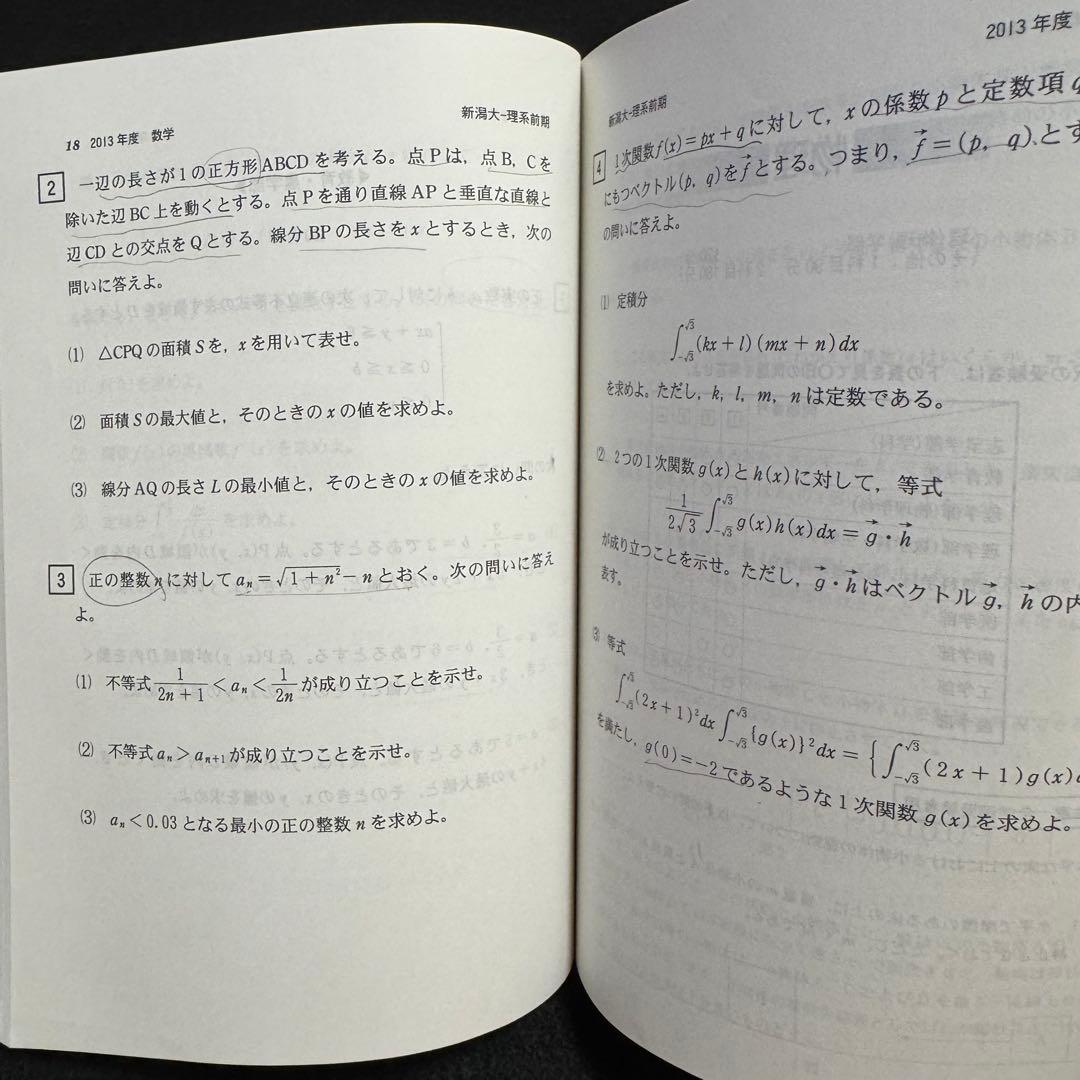 18 2013年度 数学
新潟大-理系前期
2 一辺の長さが1の正方形ABCDを考える。点Pは，点B，Cを
除いた辺BC上を動くとする。点Pを通り直線APと垂直な直線と
辺CDとの交点をQとする。線分BPの長さをxとするとき，次の
問いに答えよ。
(1) △CPQの面積Sを，xを用いて表せ。
(2) 面積Sの最大値と，そのときのxの値を求めよ。
(3) 線分AQの長さLの最小値と，そのときのxの値を求めよ。
3 正の整数nに対してaₙ=√(1+n²)−nとおく。次の問いに答え
よ。
(1) 不等式 1/(2n+1) < aₙ < 1/(2n) が成り立つことを示せ。
(2) 不等式aₙ>aₙ₊₁が成り立つことを示せ。
(3) aₙ<0.03となる最小の正の整数nを求めよ。
2013年度
新潟大-理系前期
4 1次関数f(x)=px+qに対して，xの係数pと定数項q
にもつベクトル(p, q)をf⃗とする。つまり，f⃗=(p, q)とす
の問いに答えよ。
(1) 定積分
∫_{-√3}^{√3}(kx+l)(mx+n)dx
を求めよ。ただし，k, l, m, nは定数である。
(2) 2つの1次関数g(x)とh(x)に対して，等式
1/(2√3) ∫_{-√3}^{√3} g(x)h(x)dx = g⃗・h⃗
が成り立つことを示せ。ただし，g⃗・h⃗はベクトルg⃗，h⃗の内
表す。
(3) 等式
∫_{-√3}^{√3}(2x+1)²dx ∫_{-√3}^{√3}{g(x)}²dx = {∫_{-√3}^{√3}(2x+1)g(x)
を満たし，g(0)=−2であるような1次関数g(x)を求めよ。